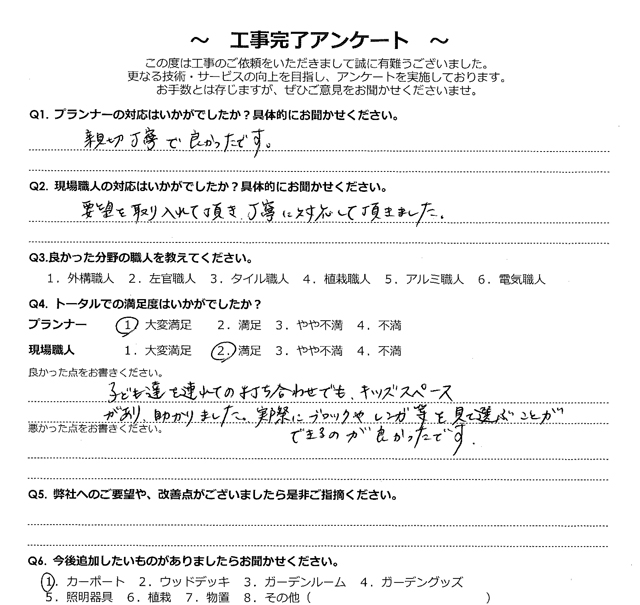 ～ 工事完了アンケート ～
この度は工事のご依頼をいただきまして誠に有難うございました。
更なる技術・サービスの向上を目指し、アンケートを実施しております。
お手数とは存じますが、ぜひご意見をお聞かせくださいませ。
Q1. プランナーの対応はいかがでしたか？具体的にお聞かせください。
親切丁寧で良かったです。
Q2. 現場職人の対応はいかがでしたか？具体的にお聞かせください。
要望を取り入れて頂き、丁寧に対応して頂きました。
Q3.良かった分野の職人を教えてください。
1. 外構職人 2. 左官職人 3. タイル職人 4. 植栽職人 5. アルミ職人 6. 電気職人
Q4. トータルでの満足度はいかがでしたか？
プランナー 1. 大変満足 2. 満足 3. やや不満 4. 不満
現場職人 1. 大変満足 2. 満足 3. やや不満 4. 不満
良かった点をお書きください。
子ども達を連れての打ち合わせでも、キッズスペース
があり、助かりました。実際にブロックやレンガ等を見て選ぶことが
悪かった点をお書きください。
できるのが良かったです。
Q5. 弊社へのご要望や、改善点がございましたら是非ご指摘ください。
Q6. 今後追加したいものがありましたらお聞かせください。
1. カーポート 2. ウッドデッキ 3. ガーデンルーム 4. ガーデングッズ
5. 照明器具 6. 植栽 7. 物置 8. その他（ ）